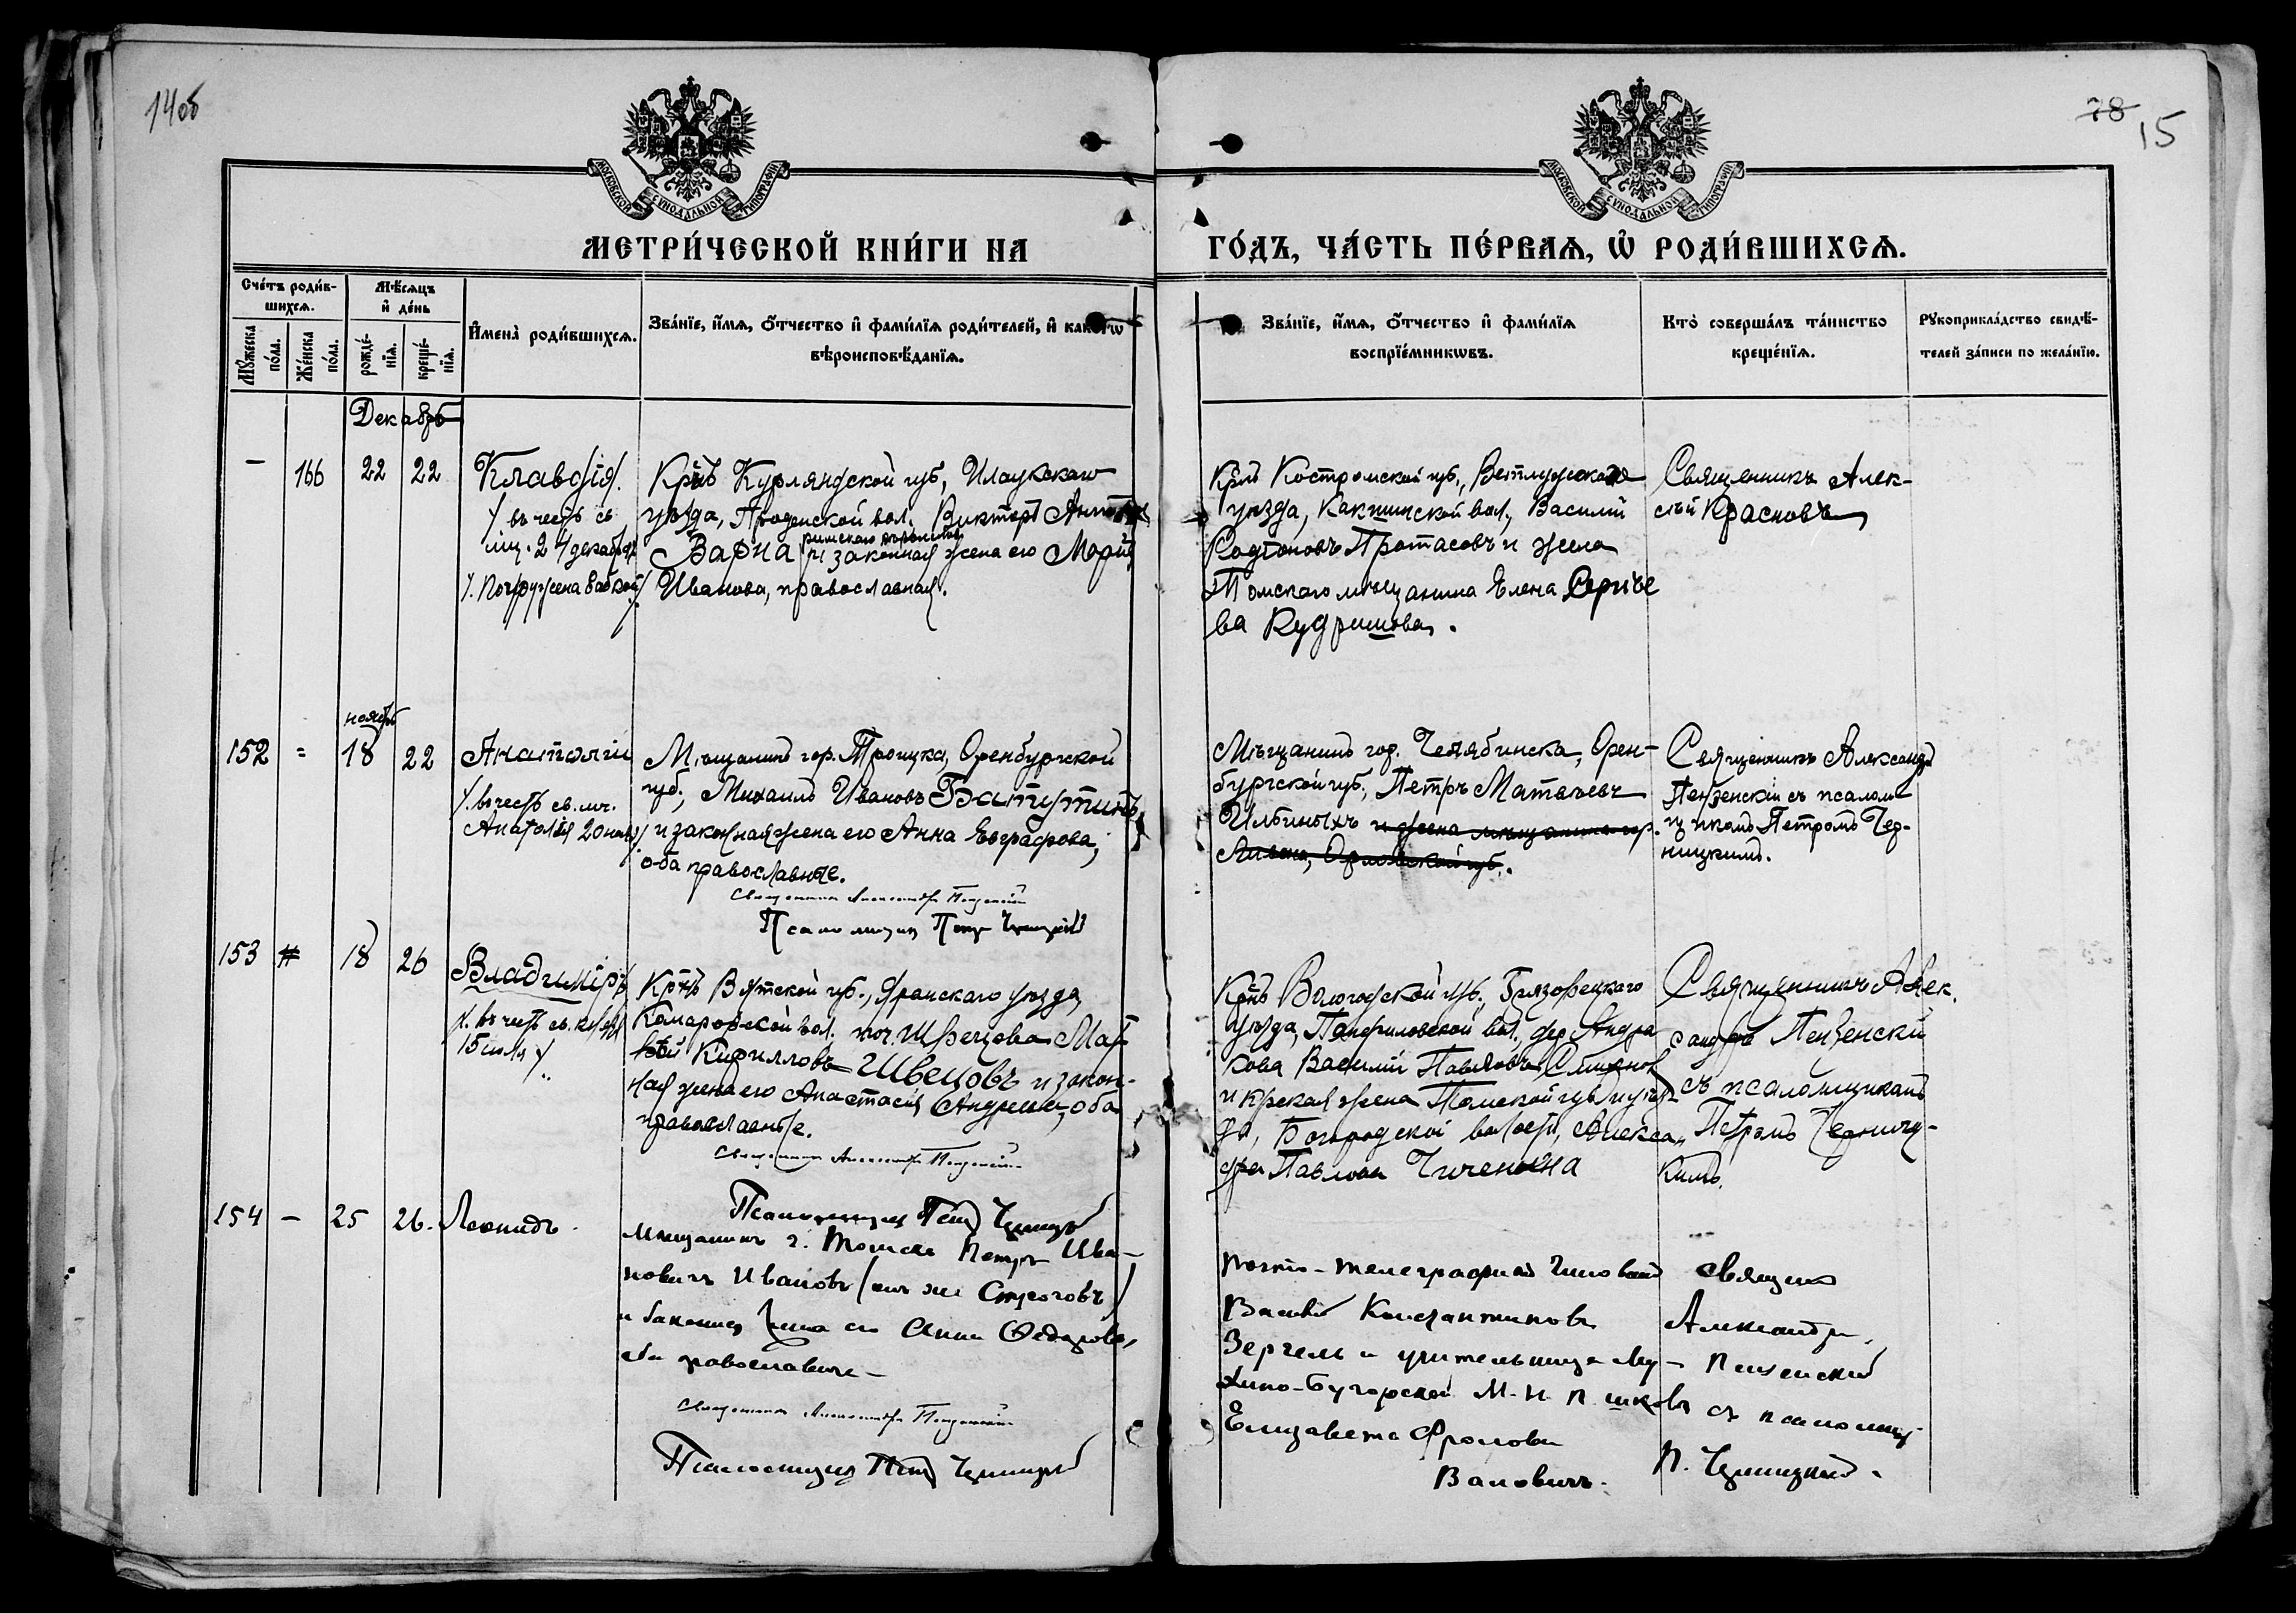 14об
78
15
МОСКОВСКОЙ СУНОДАЛЬНОЙ ТИПОГРАФІИ
МОСКОВСКОЙ СУНОДАЛЬНОЙ ТИПОГРАФІИ
МЕТРИ́ЧЕСКОЙ КНИ́ГИ НА
ГО́ДЪ, ЧА́СТЬ ПЕ́РВАѦ, Ѡ҆ РОДИ́ВШИХСѦ.
Сче́тъ роди́в-
шихсѧ.
Мꙋ́жеска
по́ла.
Же́нска
по́ла.
Мѣ́сѧцъ
и҆ де́нь
рожде́-
нїѧ.
креще́-
нїѧ.
И҆мена̀ роди́вшихсѧ.
Зва́нїе, и҆́мѧ, ѻ҆́тчество и҆ фами́лїѧ роди́телей, и҆
вѣроисповѣ́данїѧ.
Зва́нїе, и҆́мѧ, ѻ҆́тчество и҆ фами́лїѧ
воспрїе́мникѡвъ.
Кто̀ соверша́лъ та́инство
креще́нїѧ.
Рꙋкоприкла́дство свидѣ́-
телей за́писи по жела́нїю.
Декабрь
— 166 22 22
Клавдія.
/. въ честь св
мц. 24 декабря
/. Погружена бабкой/.
Крнъ Курляндской губ, Илаукскаго
уѣзда, вол. Викторъ
Варна и законная жена его Марія
Иванова, православная.
Крнъ Костромской губ., Ветлужскаго
уѣзда, Какшинской вол, Василій
Родіоновъ Протасовъ и жена
Томскаго мѣщанина Елена Сергѣе
ва
Священникъ Алек-
сѣй Красновъ
ноябрь
152 = 18 22
Анатолій
/. въ честь св. мч.
Анатолія 20 ноя/.
Мѣщанинъ гор. Троицка, Оренбургской
губ., Михаилъ Ивановъ Батутинъ,
и законная жена его Анна Евграфова,
оба православные.
Священникъ Александръ Пензенскій
Псаломщикъ Петръ Черницкій
Мѣщанинъ гор. Челябинска, Орен-
бургской губ., Петръ Матвѣевъ
Ильиныхъ и жена мѣщанина гор.
Орловской губ.
Священникъ Александръ
Пензенскій съ псалом-
щикомъ Петромъ Чер-
ницкимъ.
153 18 26
Владиміръ
/. въ честь св. князя
15 іюля /.
Крнъ Вятской губ., Яранскаго уѣзда,
Комаровской вол. поч. Швецова Мат-
вѣй Кирилловъ Швецовъ и закон-
ная жена его Анастасія Андреева, оба
православные.
Священникъ Александръ Пензенскій
Псаломщикъ Петръ Черницкій
Крнъ Вологодской губ., Грязовецкаго
уѣзда, Панфиловской вол., дер. Андра
кова Василій Павловъ Смирновъ
и крская жена Томской губ и уѣз-
да, Богородской волости, Алексан
дра Павлова
Священникъ Алек.
сандръ Пензенскій
съ псаломщикомъ
Петромъ Черниц-
кимъ.
154 — 25 26.
Леонидъ.
Мѣщанинъ г. Томска Петръ Ива-
новичъ Ивановъ (онъ же Строговъ)
и законная жена его Анна Федорова,
оба православные —
Священникъ Александръ Пензенскій
Псаломщикъ Петръ Черницкій
Почто-телеграфный чиновникъ
Василій Константиновъ
Зергель и учительница Му-
хино-Бугорской М. Н. П. школы
Елизавета Фролова
Вановичъ.
Священ
Александръ
Пензенскій
съ псаломщ-
П. Черницкій.